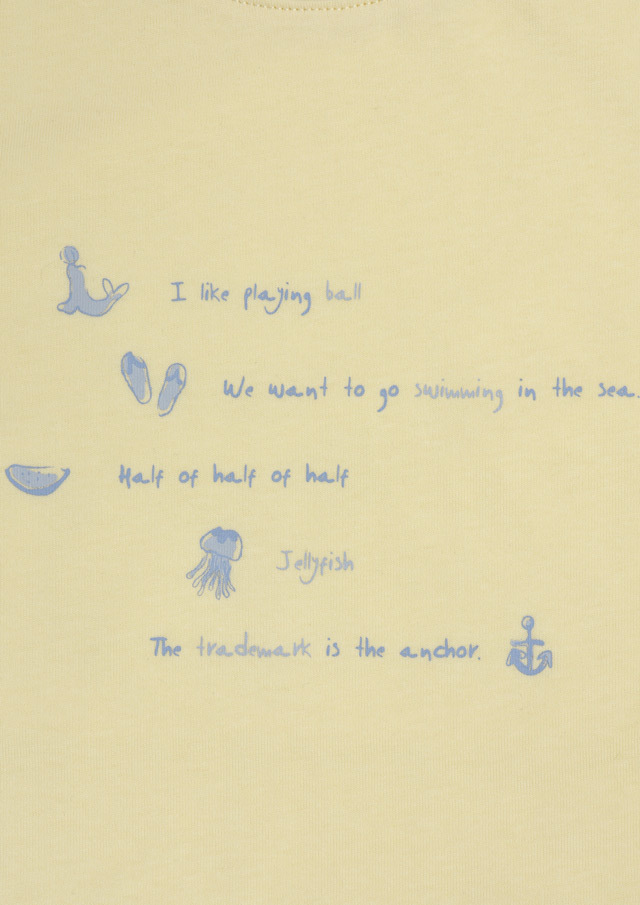 I like playing ball
We want to go swimming in the sea.
Half of half of half
Jellyfish
The trademark is the anchor.